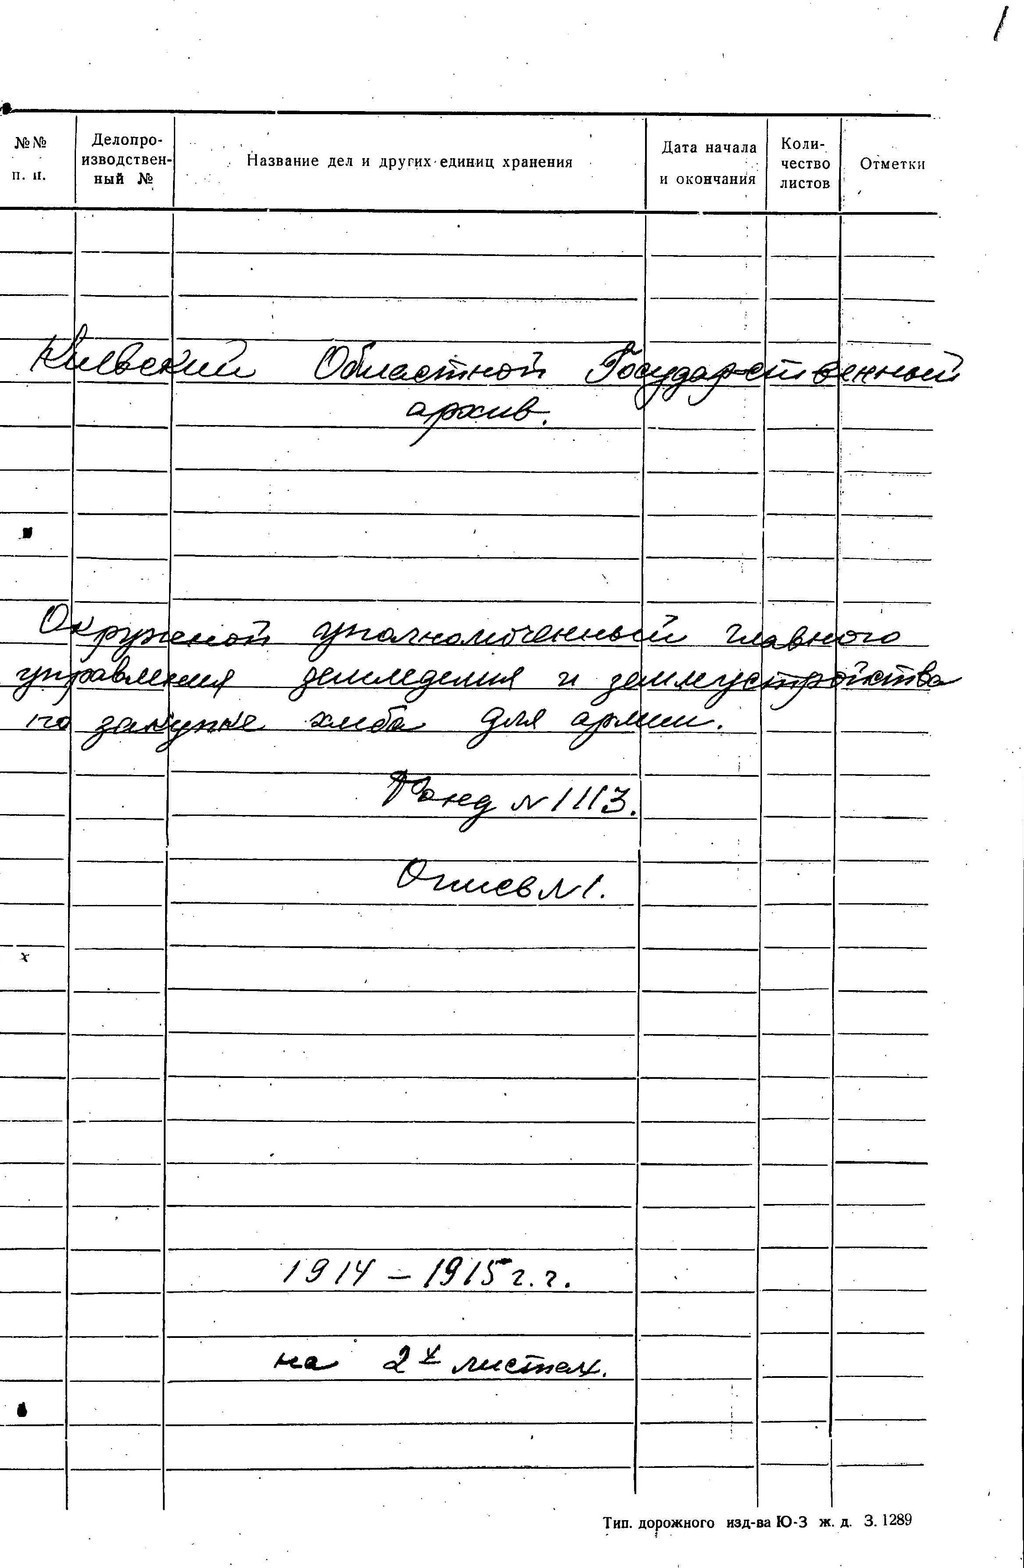 1
№№ п. п.
Делопро-
изводствен-
ный №
Название дел и других единиц хранения
Дата начала
и окончания
Коли-
чество
листов
Отметки
Киевский Областной Государственный
архив.
Окружной уполномоченный главного
управления земледелия и землеустройства
по закупке хлеба для армии.
Фонд № 1113.
Опись № 1.
1914 – 1915 г. г.
на 2х листах.
Тип. дорожного изд-ва Ю-З ж. д. З. 1289